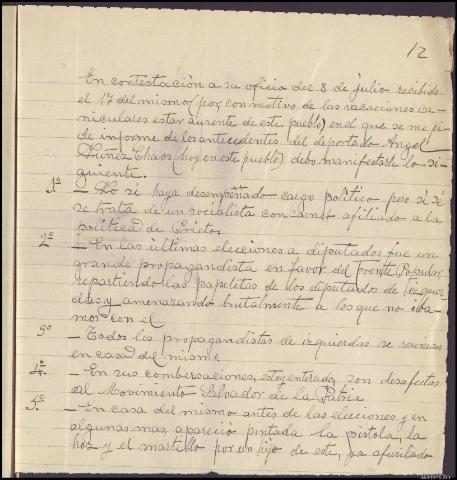 12
En contestación a su oficio del 8 de julio recibido
el 17 del mismo (por, con motivo de las vacaciones ca-
niculares estar ausente de este pueblo) en el que se me pi-
de informe de los antecedentes del deportado Angel
Nuñez Chaos (hoy en este pueblo) debo manifestarle lo si-
guiente.
1º — No si haya desempeñado cargo político pero sí sé
se trata de un socialista con carnet afiliado a la
política de
2º — En las últimas elecciones a diputados fue un
grande propagandista en favor del Frente Popular
repartiendo las papeletas de los diputados de izquier
das y amenazando brutalmente a los que no iba-
mos con el
3º — Todos los propagandistas de izquierdas se reunian
en casa del mismo
4º — En sus combersaciones, estoy enterado, son desafectas
al Movimiento Salvador de la Patria
5º — En casa del mismo antes de las elecciones y en
algunas mas, apareció pintada la pistola, la
hoz y el martillo por un hijo de este, ya afusilado